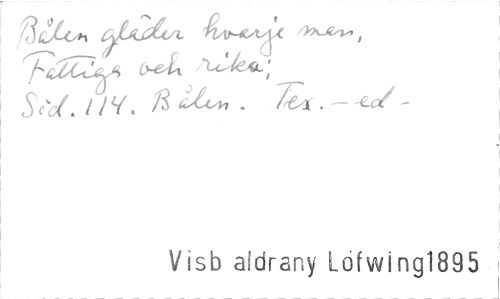 Bålen gläder hvarje man,
Fattiga och rika;
Sid. 114. Bålen. Tex. - ed -
Visb aldrany Löfwing1895